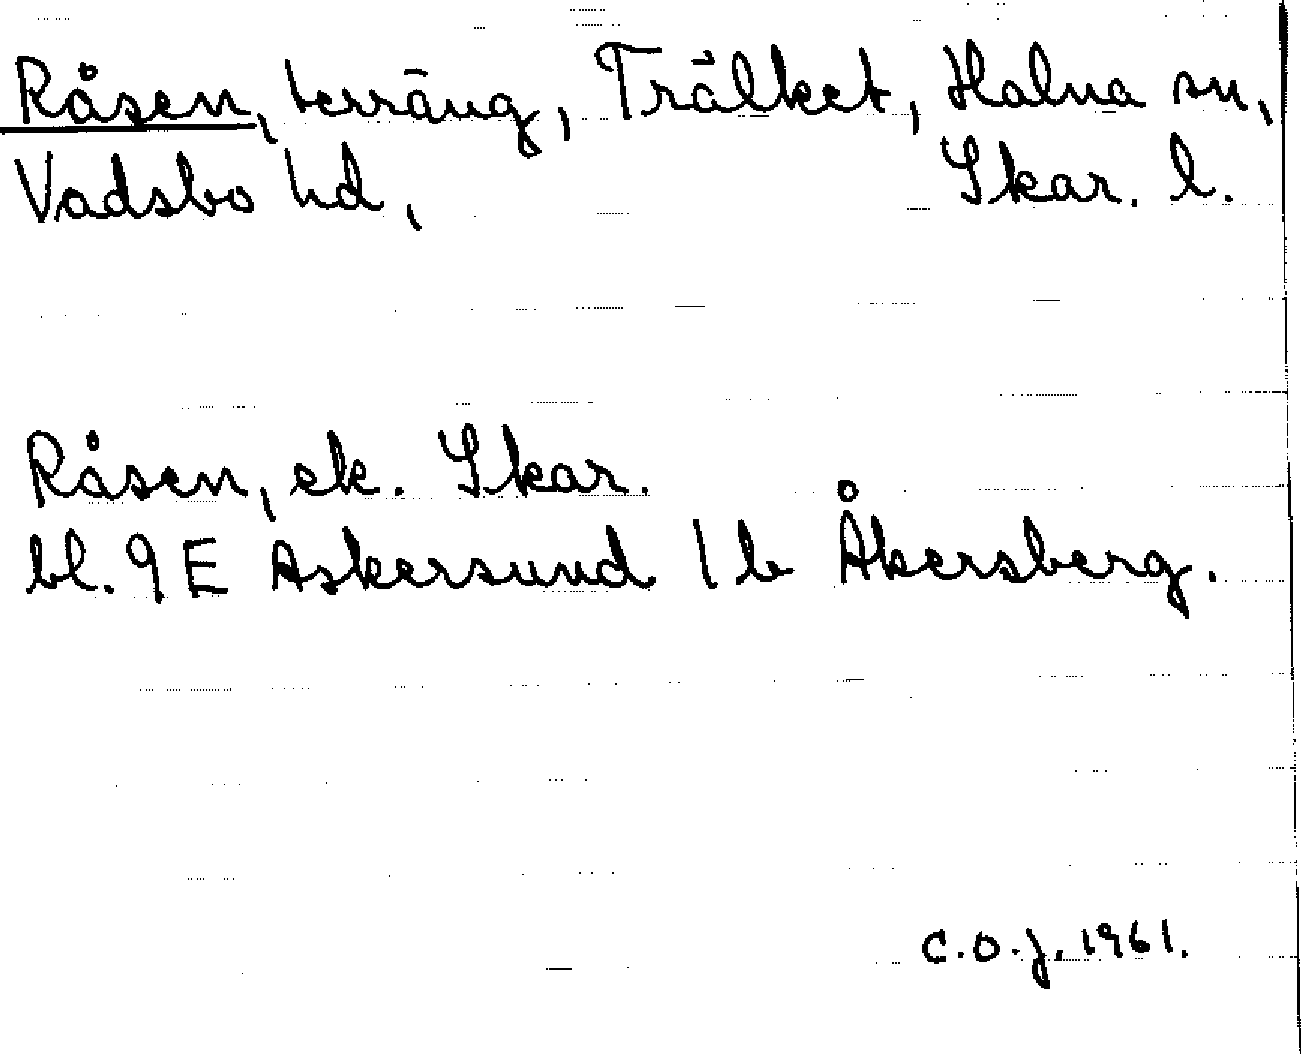 Råsen, terräng, Trälket, Halna sn,
Vadsbo hd, Skar. l.
Råsen, ek. Skar.
bl. 9 E Askersund 1 b Åkersberg.
C.O.J. 1961.